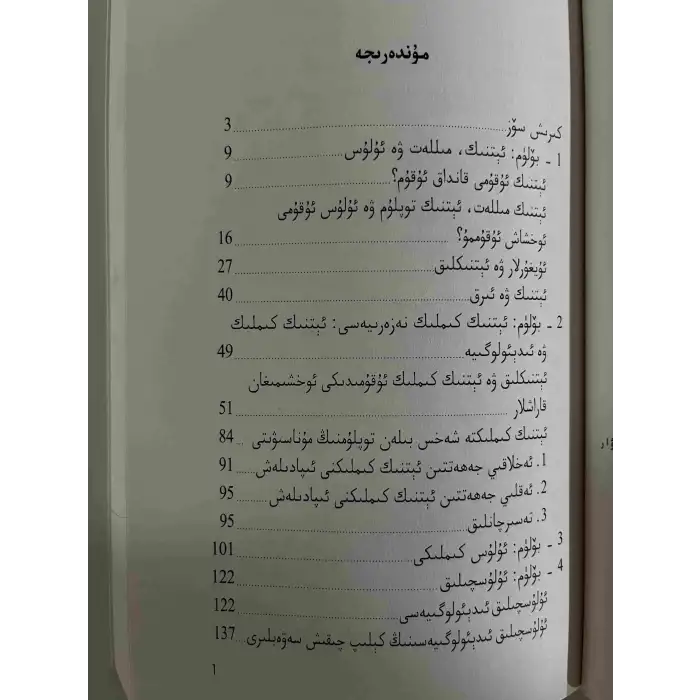 مۇندەرىجە
كىرىش سۆز 3
1 ـ بۆلۈم: ئېتنىك، مىللەت ۋە ئۇلۇس 9
ئېتنىك ئۇقۇمى قانداق ئۇقۇم؟ 9
ئېتنىك مىللەت، ئېتنىك توپلۇم ۋە ئۇلۇس ئۇقۇمى
ئوخشاش ئۇقۇممۇ؟ 16
ئۇيغۇرلار ۋە ئېتنىكلىق 27
ئېتنىك ۋە ئىرق 40
2 ـ بۆلۈم: ئېتنىك كىملىك نەزەرىيەسى: ئېتنىك كىملىك
ۋە ئىدېئولوگىيە 49
ئېتنىكلىق ۋە ئېتنىك كىملىك ئۇقۇمىدىكى ئوخشىمىغان
قاراشلار 51
ئېتنىك كىملىكتە شەخس بىلەن توپلۇمنىڭ مۇناسىۋىتى 84
1. ئەخلاقىي جەھەتتىن ئېتنىك كىملىكنى ئىپادىلەش 91
2. ئەقلىي جەھەتتىن ئېتنىك كىملىكنى ئىپادىلەش 95
3. تەسىرچانلىق 95
3 ـ بۆلۈم: ئۇلۇس كىملىكى 101
4 ـ بۆلۈم: ئۇلۇسچىلىق 122
ئۇلۇسچىلىق ئىدېئولوگىيەسى 122
ئۇلۇسچىلىق ئىدېئولوگىيەسىنىڭ كېلىپ چىقىش سەۋەبلىرى 137
1